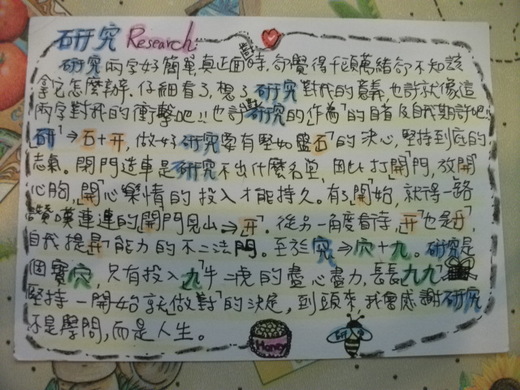 研究 Research:
研究兩字好簡單真正面對時,卻覺得千頭萬緒卻不知該
拿它怎麼辦.仔細看了,想了研究對我的意義也許就像這
兩字對我的衝擊吧!!也許對研究的作為的自省及自我期許吧!
研⇒石+开,做好研究需有堅如磐石的決心,堅持到底的
志氣。閉門造車是研究不出什麼名堂,因此打開門,放開
心胸,開心樂情的投入才能持久。有了開始,就得一路
讚嘆連連的開門見山⇒开。從另一角度看待,开也是升,
自我提昇能力的不二法門。至於究⇒穴+九。研究是
個寶穴,只有投入九牛二虎的盡心盡力,長長九九
堅持一開始就做對的決定,到頭來,我會感謝研究
不是學問,而是人生。
Honey
研